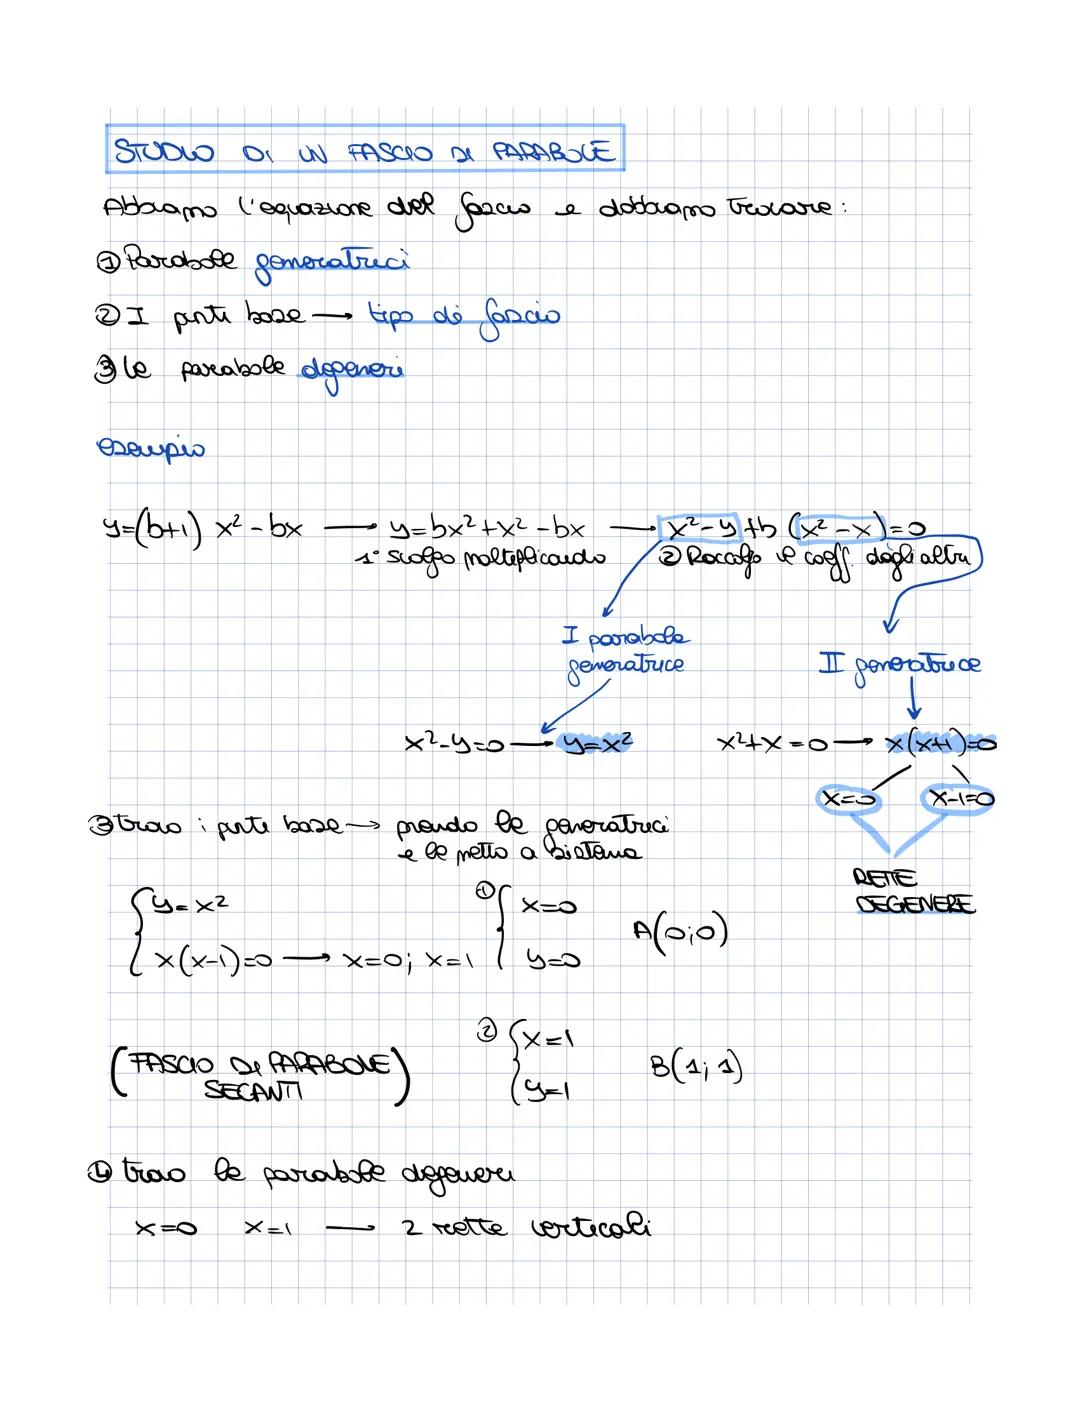 STUDIO DI UN FASCIO DI PARABOLE
Abbiamo l'equazione del fascio e dobbiamo trovare:
① Parabole generatrici
② I punti base → tipo di fascio
③ le parabole degeneri
esempio
y=(b+1) x² - bx → y=bx²+x² -bx → x²-y+b (x²-x)=0
1° svolgo moltiplicando ② Raccolgo il coeff. dagli altri
I parabola
generatrice
II generatrice
x²-y=0 → y=x² x²+x=0 → x(x+1)=0
x=0 x-1=0
RETTE
DEGENERE
③ trovo i punti base → prendo le generatrici
e le metto a sistema
y=x² ① x=0 A(0;0)
x(x-1)=0 → x=0; x=1 y=0
(FASCIO DI PARABOLE
SECANTI)
② x=1 B(1;1)
y=1
④ trovo le parabole degeneri
x=0 x=1 → 2 rette verticali